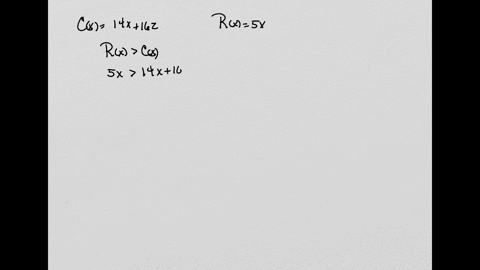 C(x) = 14x + 162 R(x) = 5x
R(x) > C(x)
5x > 14x + 16